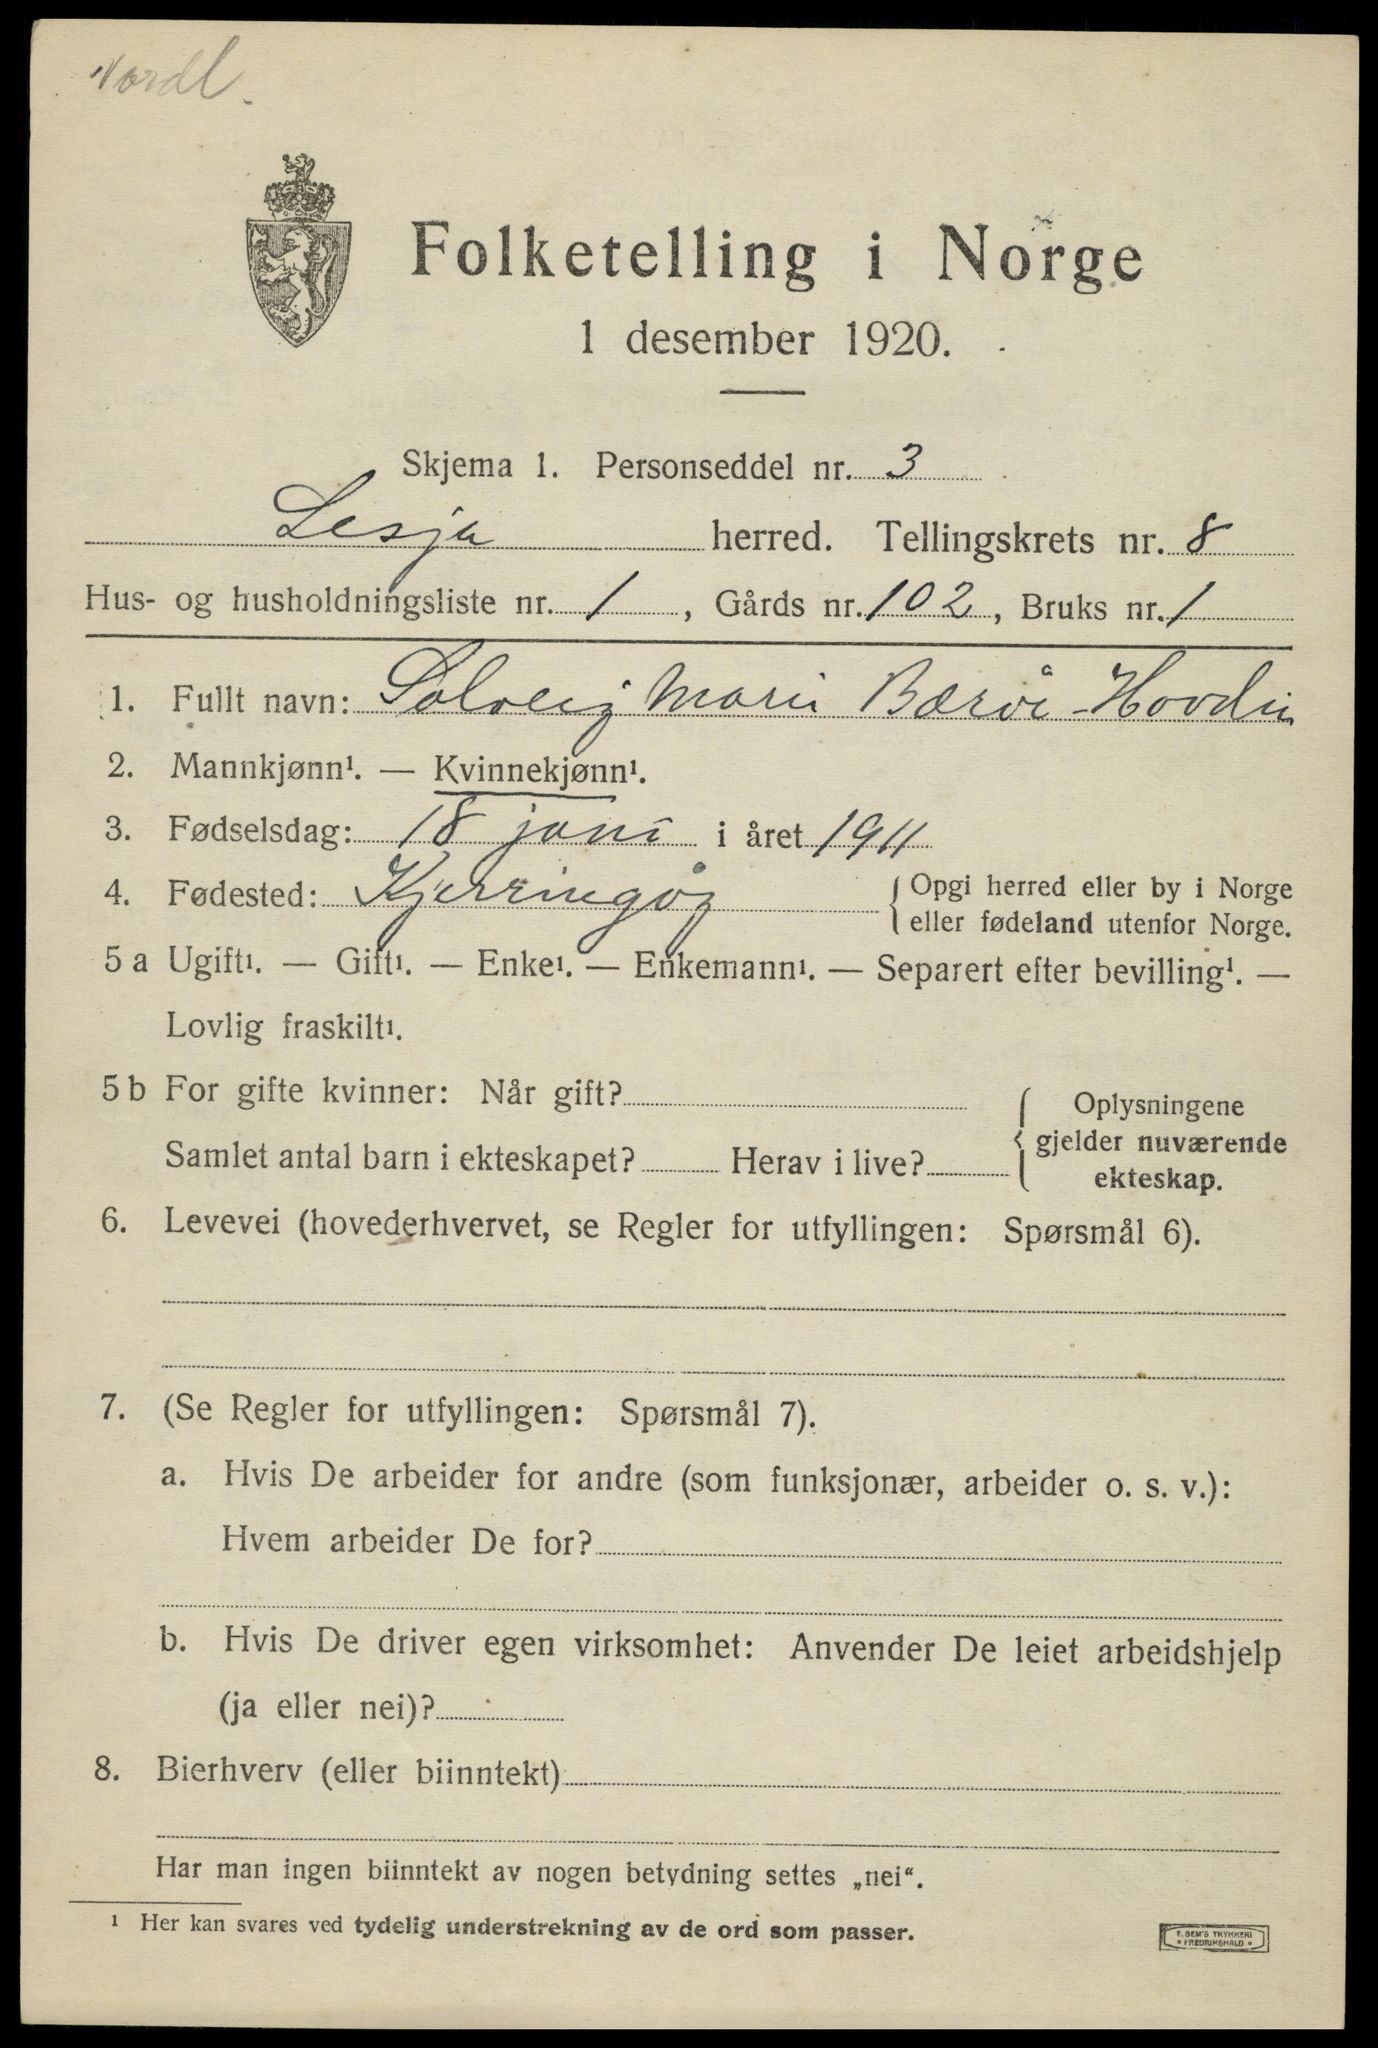 Nordl.
Folketelling i Norge
1 desember 1920.
Skjema 1. Personseddel nr. 3
Lesja herred. Tellingskrets nr. 8
Hus- og husholdningsliste nr. 1, Gårds nr. 102, Bruks nr. 1
1. Fullt navn: Solveig Marie Bærøe-Hovdin
2. Mannkjønn¹. — Kvinnekjønn¹.
3. Fødselsdag: 18 juni i året 1911
4. Fødested: Kjerringøy { Opgi herred eller by i Norge
eller fødeland utenfor Norge.
5 a Ugift¹. — Gift¹. — Enke¹. — Enkemann¹. — Separert efter bevilling¹. —
Lovlig fraskilt¹.
5 b For gifte kvinner: Når gift?
Samlet antal barn i ekteskapet? Herav i live?
{ Oplysningene
gjelder nuværende
ekteskap.
6. Levevei (hovederhvervet, se Regler for utfyllingen: Spørsmål 6).
7. (Se Regler for utfyllingen: Spørsmål 7).
a. Hvis De arbeider for andre (som funksjonær, arbeider o. s. v.):
Hvem arbeider De for?
b. Hvis De driver egen virksomhet: Anvender De leiet arbeidshjelp
(ja eller nei)?
8. Bierhverv (eller biinntekt)
Har man ingen biinntekt av nogen betydning settes „nei“.
¹ Her kan svares ved tydelig understrekning av de ord som passer.
E. SEM'S TRYKKERI
• FREDRIKSHALD •